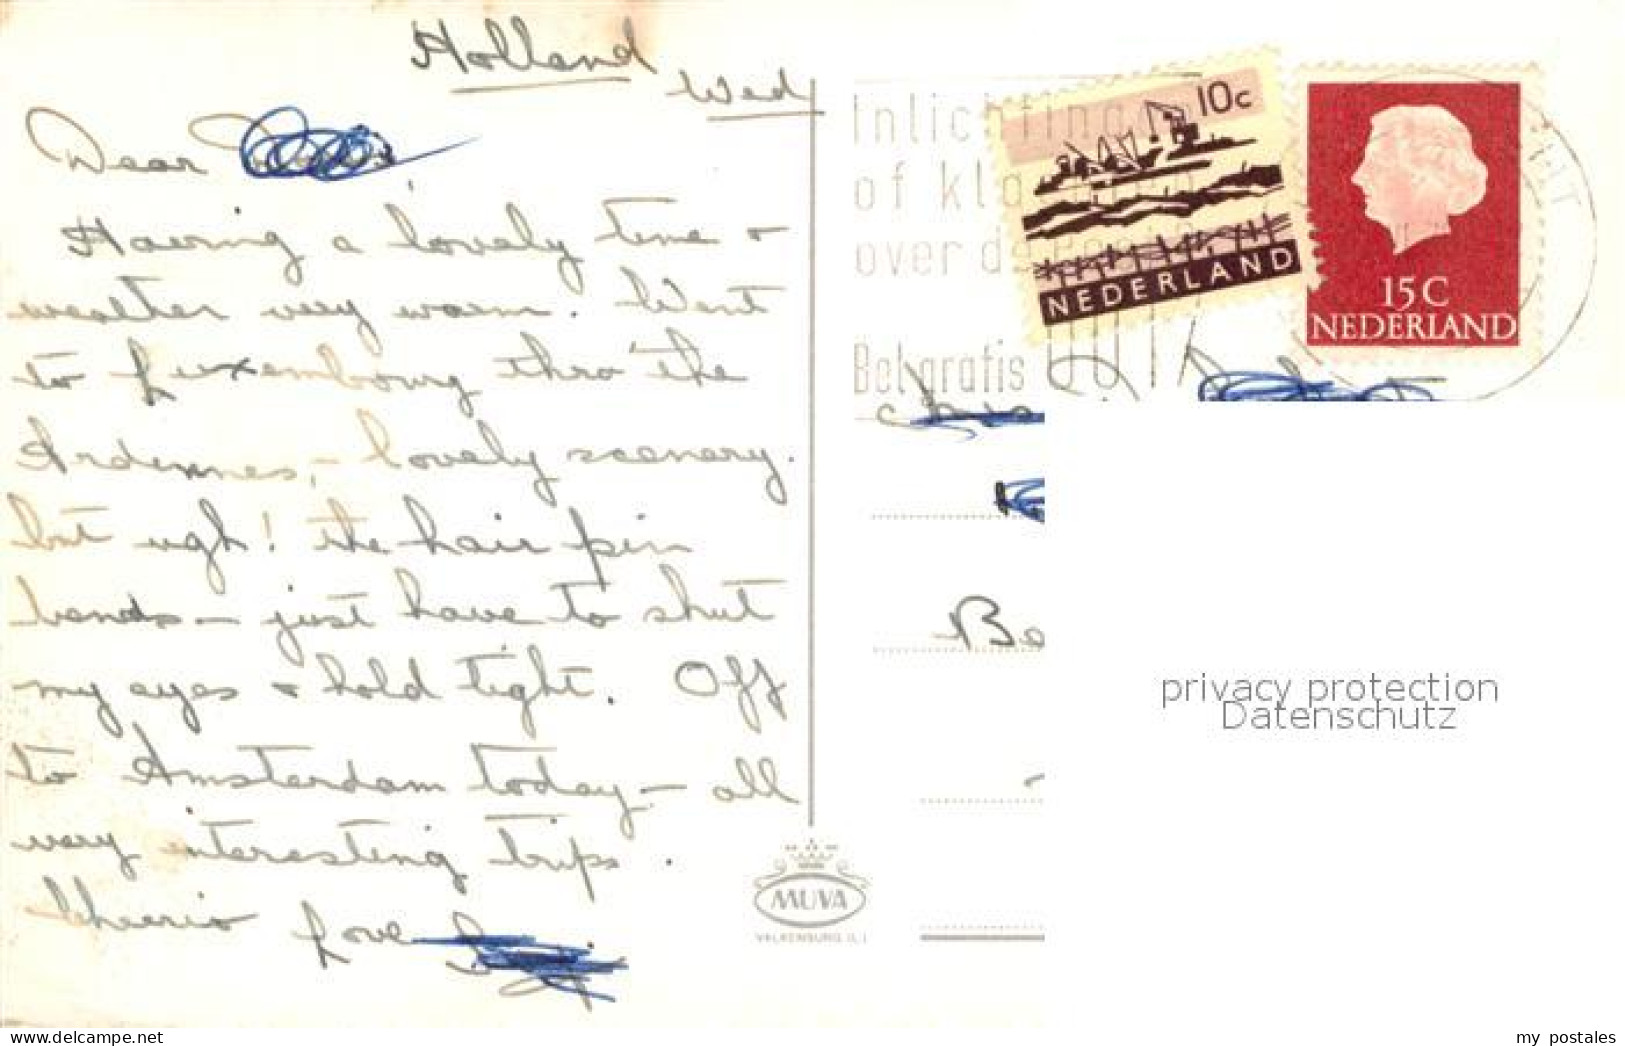 Holland
Wed
Dear
Having a lovely time +
weather very warm. Went
to Luxembourg thro' the
Ardennes, - lovely scenery.
but ugh! the hair pin
bends - just have to shut
my eyes + hold tight. Off
to Amsterdam today - all
very interesting trips.
Cheerio Love
Inlichting
of kla
over de
Bel gratis 001
10c
NEDERLAND
15 C
NEDERLAND
Be
MUVA
VALKENBURG (L.)
privacy protection
Datenschutz
my postales